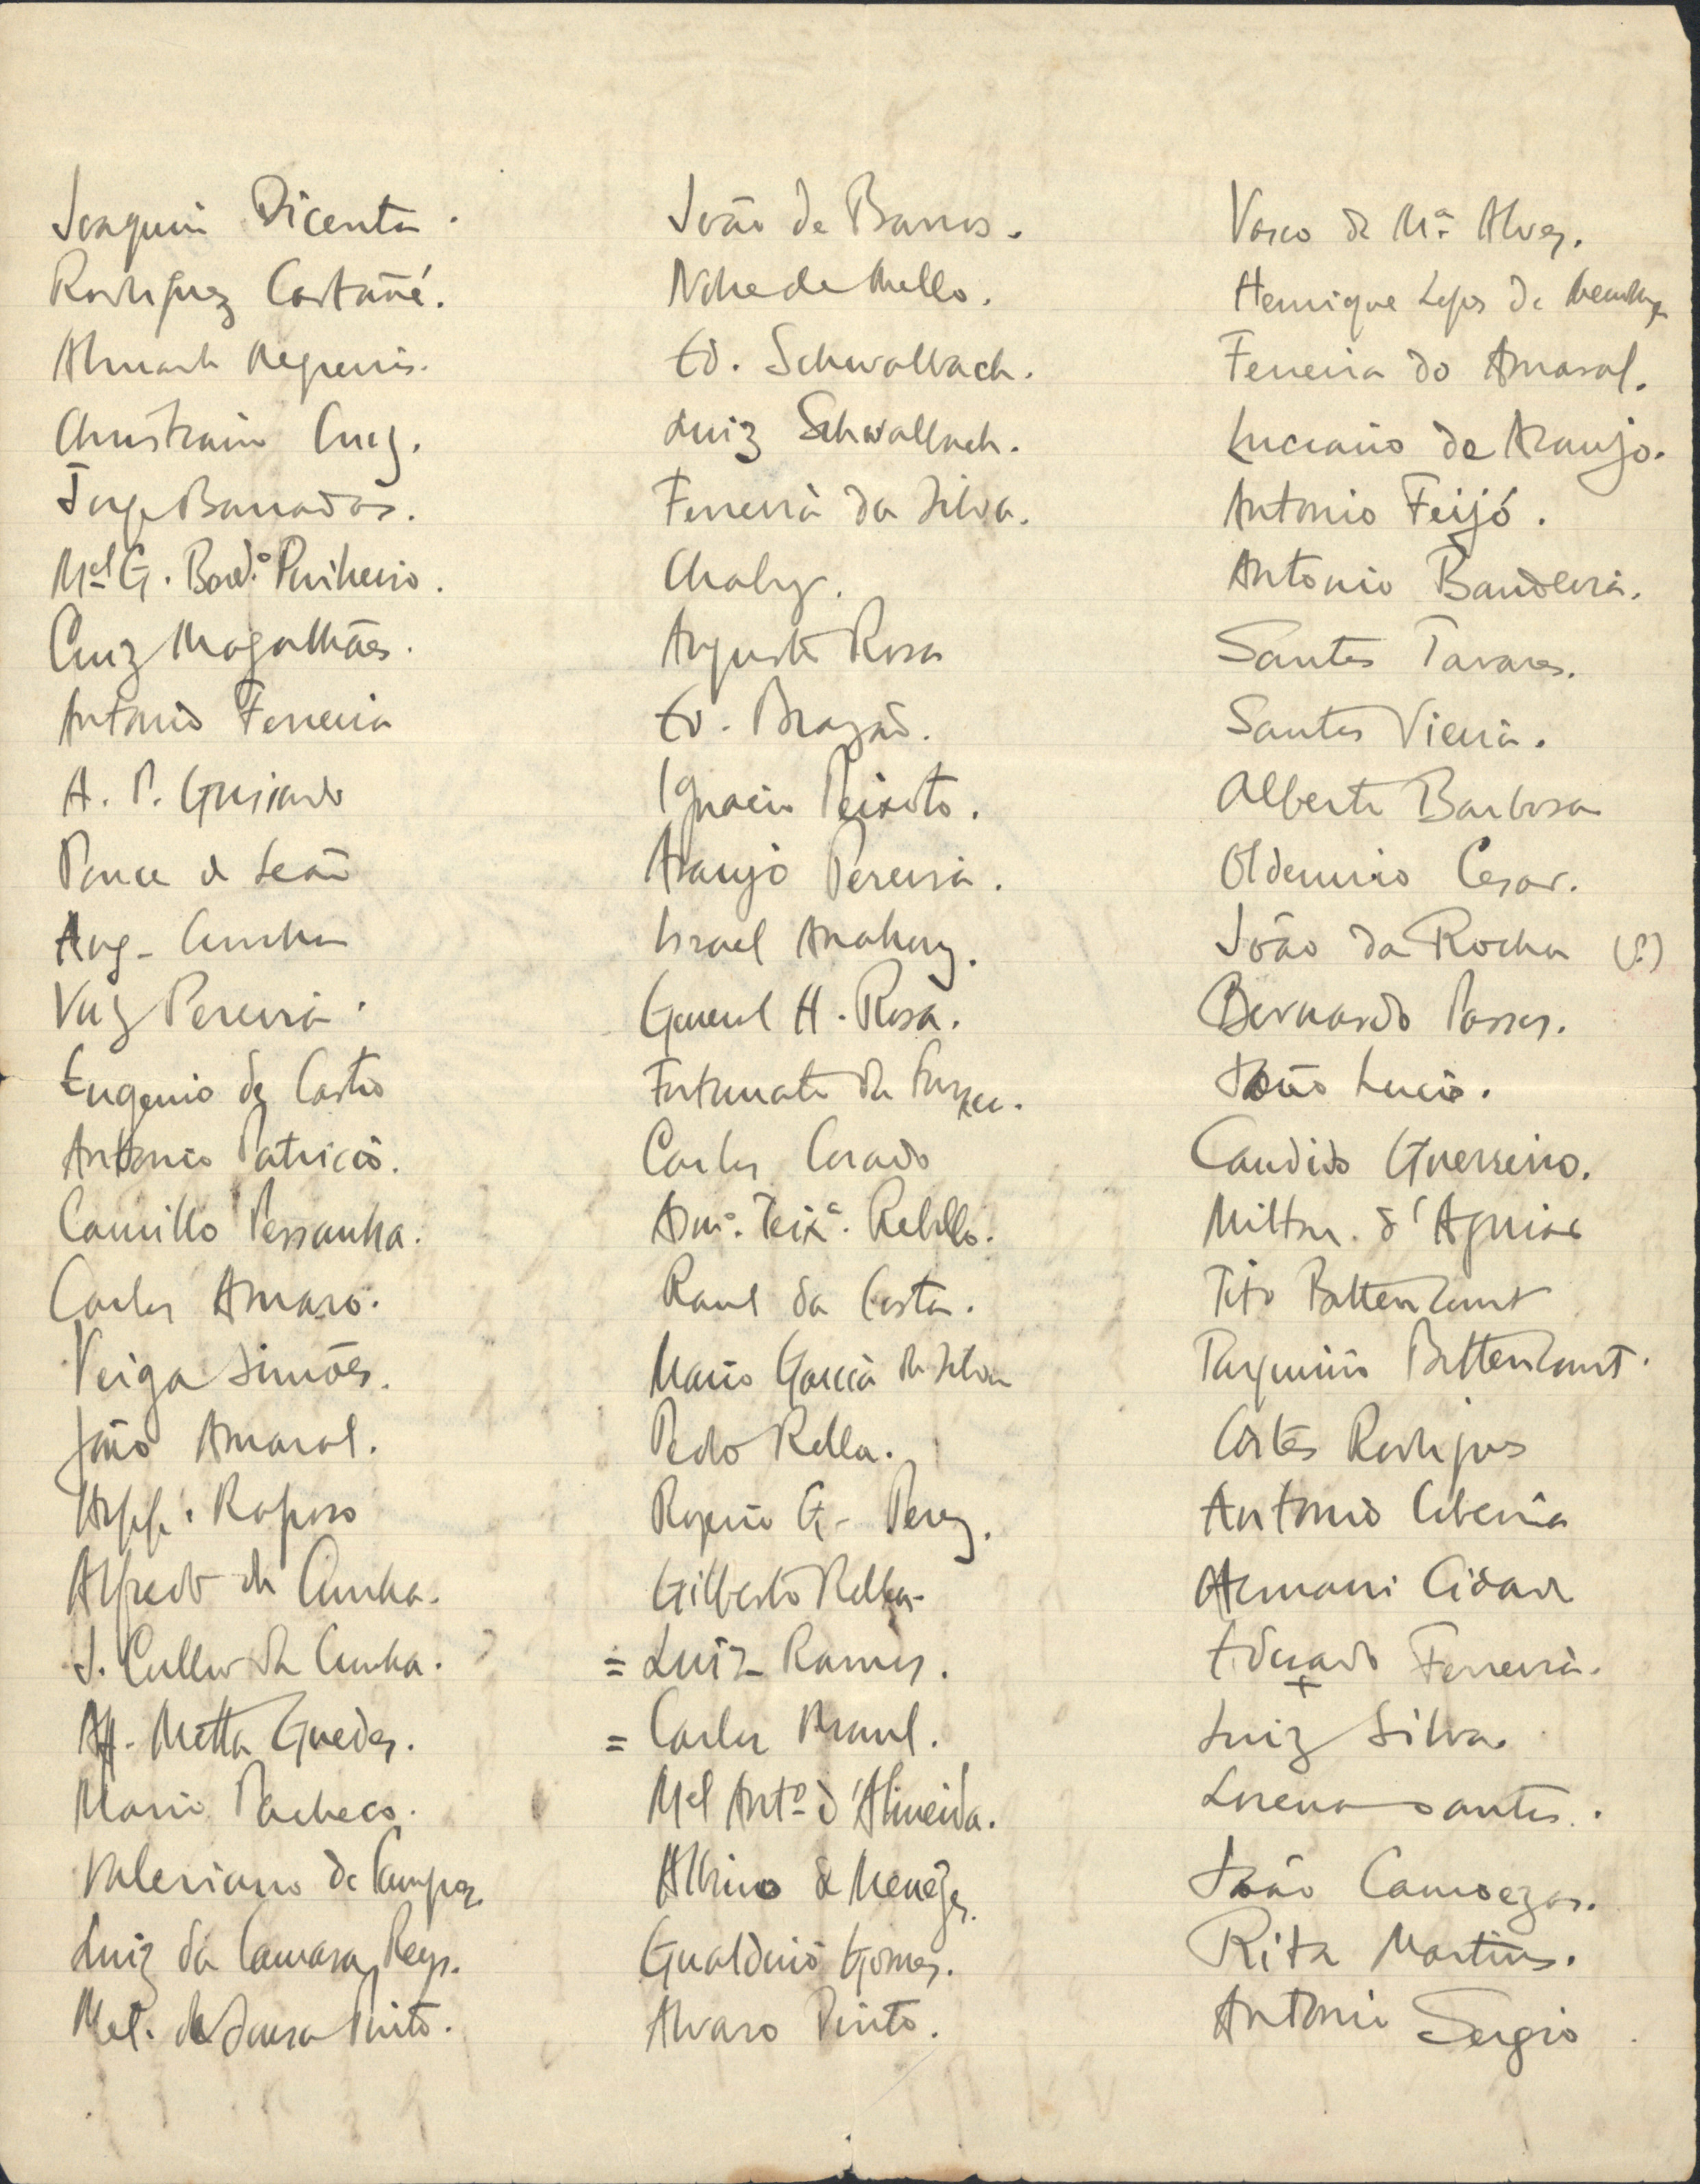 Joaquin Dicenta.
Rodriguez Castañé.
Negreiros.
Christiano Cruz.
Jorge Barradas.
Mel G. Bord.º Pinheiro.
Cruz Magalhães.
Antonio Ferreira
A. P. Guisado
Ponce de Leão
Aug. Cunha
Vaz Pereira.
Eugenio de Castro
Antonio Patricio.
Camillo Pessanha.
Carlos Amaro.
Veiga Simões.
João Amaral.
Raposo
Alfredo da Cunha.
J. da Cunha.
Aff. Motta Guedes.
Mario Pacheco.
Valeriano de Campos.
Luiz da Camara Reys.
Mel. de Sousa Pinto.
João de Barros.
Nobre de Mello.
Ed. Schwalbach.
Luiz Schwalbach.
Ferreira da Silva.
Chaby.
Augusto Rosa
Ed. Brazão.
Ignacio Peixoto.
Araujo Pereira.
Israel Anahory.
General H. Rosa.
Fortunato da Fonseca.
Carlos
Anº. Teixª. Rebello.
Raul da Costa.
Mario Garcia da Silva
Pedro Rella.
Rogerio G. Perez.
Gilberto Rella.
= Luiz Ramos.
= Carlos
Mel Antº d'Almeida.
Albino de Menezes.
Gualdino Gomes.
Alvaro Pinto.
Vasco de Mª Alves.
Henrique Lopes de Mendonça
Ferreira do Amaral.
Luciano de Araujo.
Antonio Feijó.
Antonio Bandeira.
Santos Tavares.
Santos Vieira.
Alberto Barbosa
Oldemiro Cesar.
João da Rocha (?)
Bernardo Passos.
João Lucio.
Candido Guerreiro.
Milton. d'Aguiar
Tito Bettencourt
Bettencourt.
Côrtes Rodrigues
Antonio
Hernani Cidade
Eduardo Ferreira.
+
Luiz Silva.
Lorena Santos.
João Camoezas.
Rita Martins.
Antonio Sergio